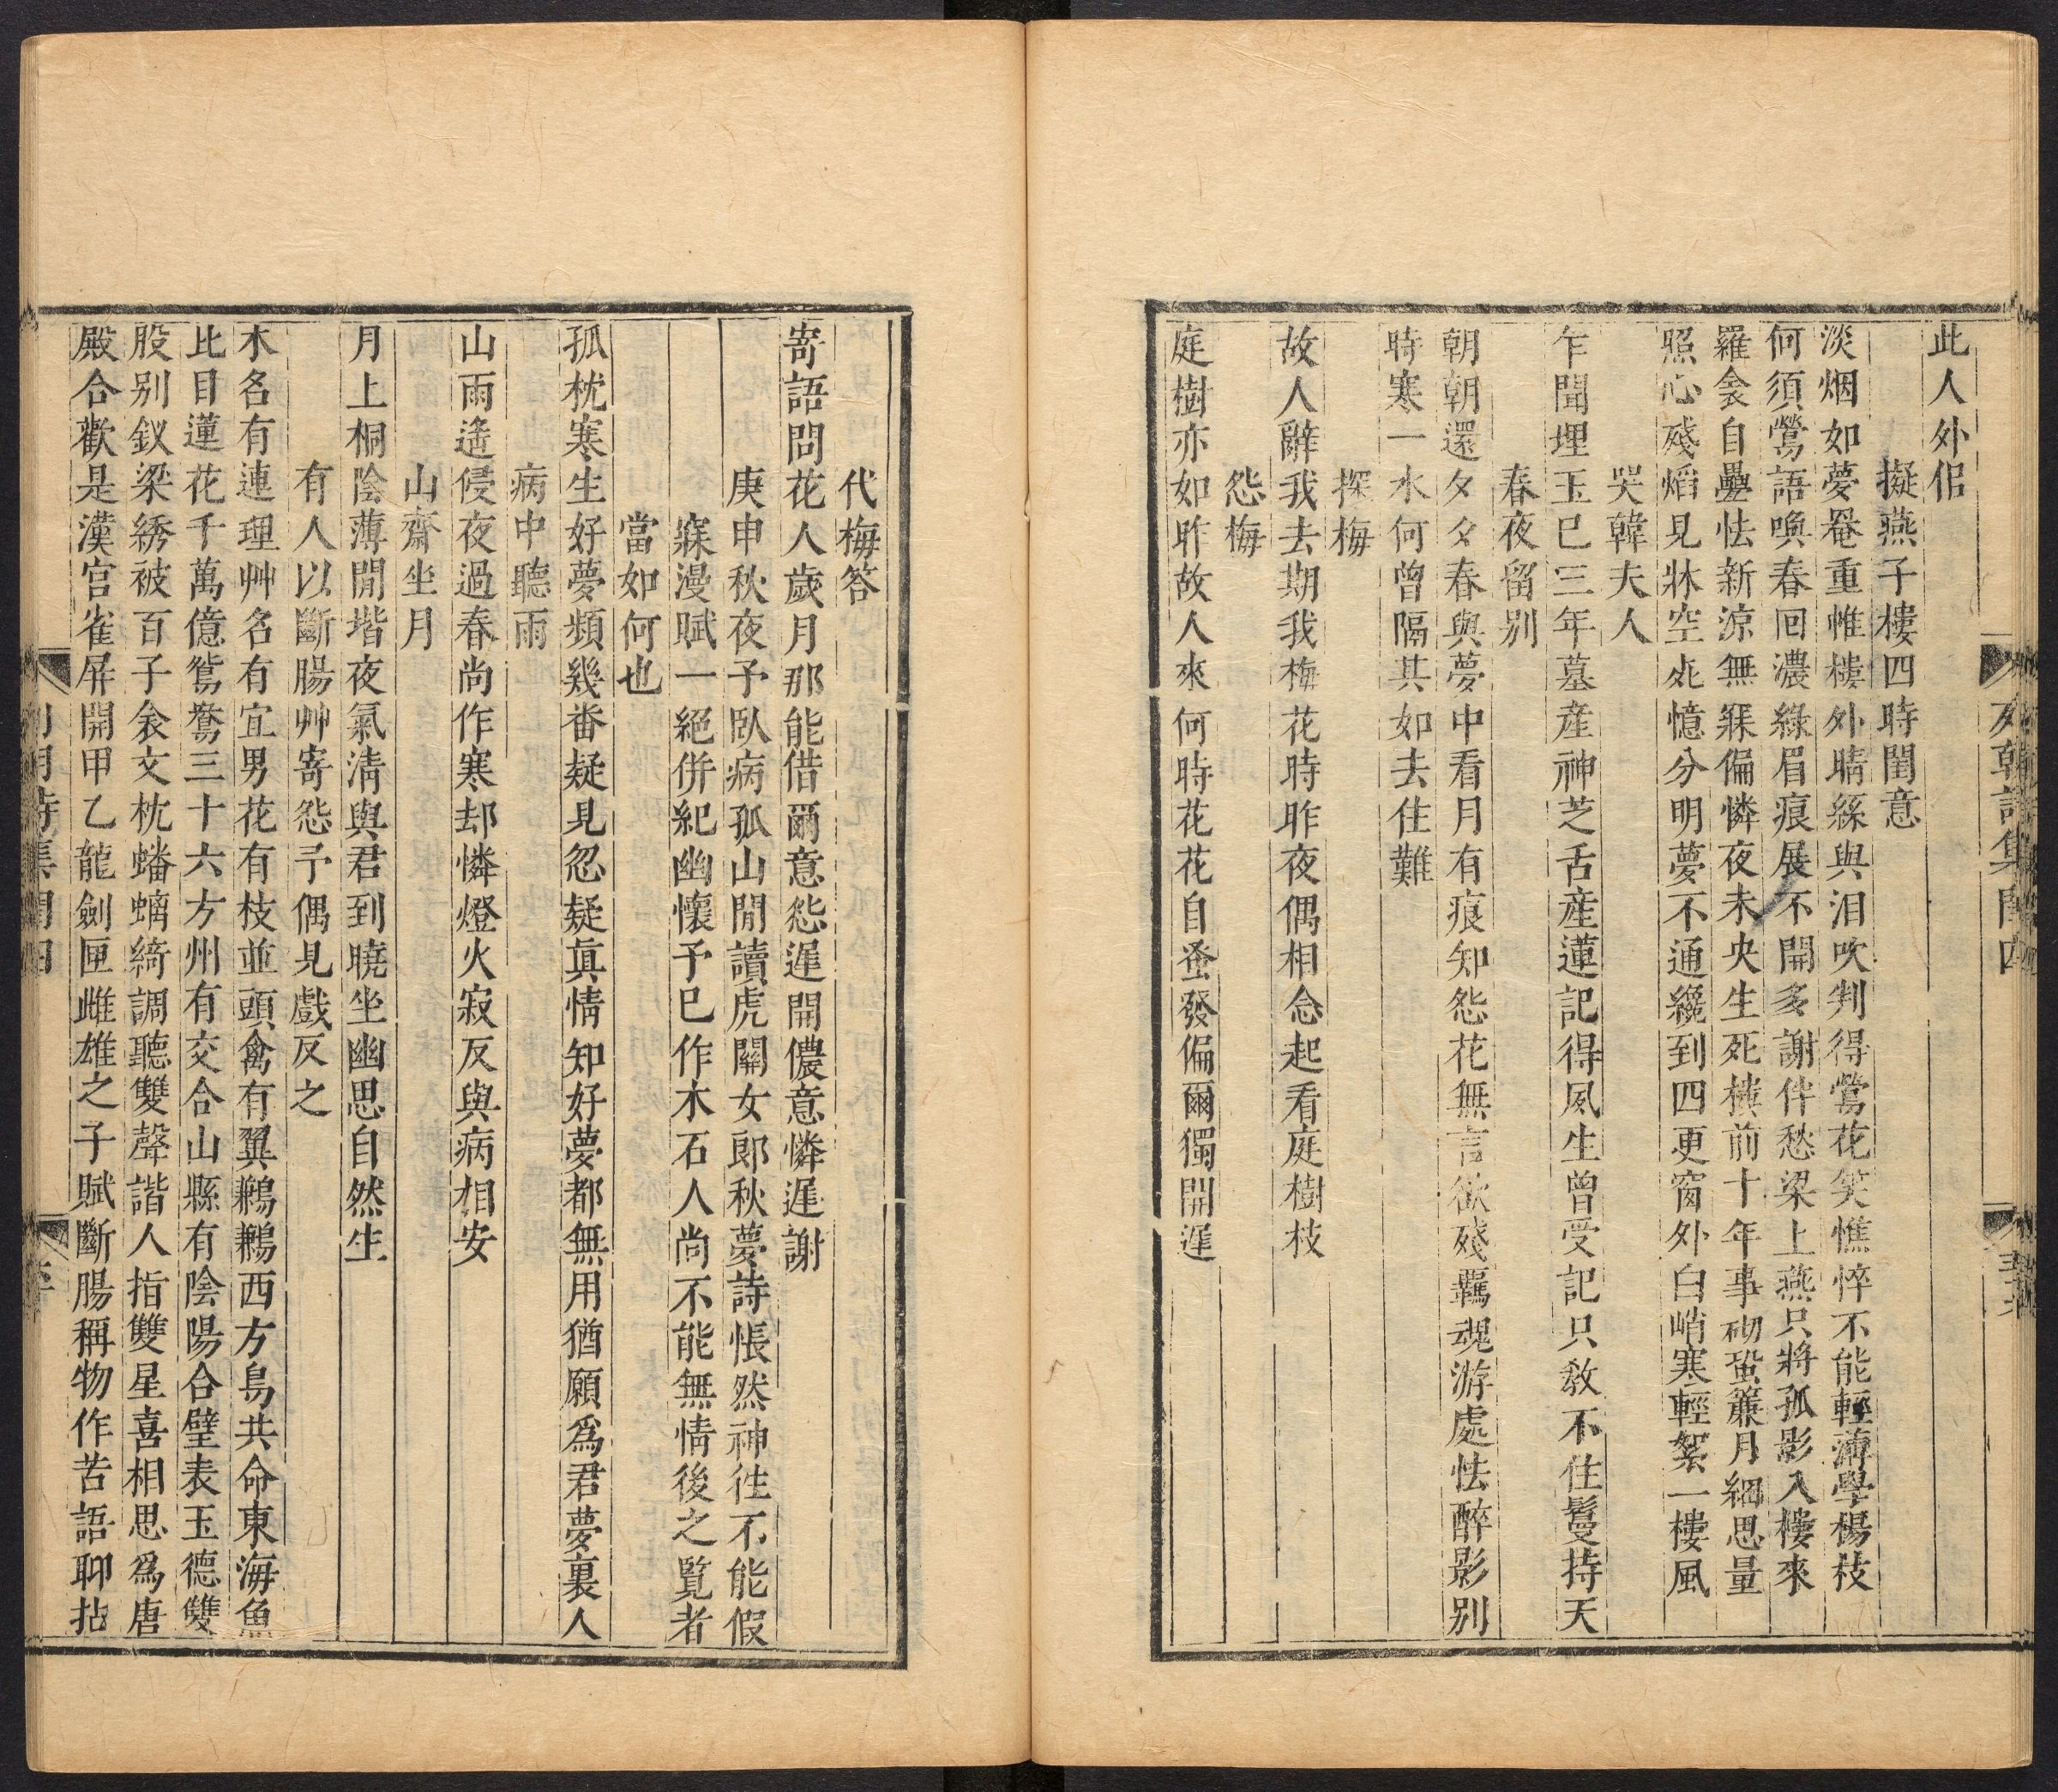 此人外佀
擬燕子樓四時閨意
淡烟如夢罨重帷樓外晴絲與淚吹判得鶯花笑憔悴不能輕薄學楊枝
何須鶯語喚春回濃綠眉痕展不開多謝伴愁梁上燕只將孤影入樓來
羅衾自疊怯新涼無寐偏憐夜未央生死樓前十年事砌蛩簾月細思量
照心殘熖見牀空𠁅憶分明夢不通纔到四更窗外白峭寒輕絮一樓風
哭韓夫人
乍聞埋玉已三年墓產神芝舌產蓮記得夙生曾受記只敎不住鬘持天
春夜留别
朝朝還夕夕春與夢中看月有痕知怨花無言欲殘羈魂游處怯醉影别
時寒一水何曾隔其如去住難
探梅
故人辭我去期我梅花時昨夜偶相念起看庭樹枝
怨梅
庭樹亦如昨故人來何時花花自蚤發偏爾獨開遲
代梅答
寄語問花人歲月那能借爾意怨遲開儂意憐遲謝
庚申秋夜予臥病孤山閒讀虎關女郎秋夢詩悵然神徃不能假
寐漫賦一絕併紀幽懷予已作木石人尚不能無情後之覧者
當如何也
孤枕寒生好夢頻幾番疑見忽疑眞情知好夢都無用猶願爲君夢裏人
病中聽雨
山雨遙侵夜過春尚作寒却憐燈火寂反與病相安
山齋坐月
月上桐陰薄閒堦夜氣淸與君到曉坐幽思自然生
有人以斷腸艸寄怨予偶見戲反之
木名有連理艸名有宜男花有枝並頭禽有翼鶼鶼西方鳥共命東海魚
比目蓮花千萬億鴛鴦三十六方州有交合山縣有陰陽合璧表玉德雙
股别釵梁綉被百子衾文枕蟠螭綺調聽雙聲諧人指雙星喜相思爲唐
殿合歡是漢宫雀屏開甲乙龍劍匣雌雄之子賦斷腸稱物作苦語聊拈